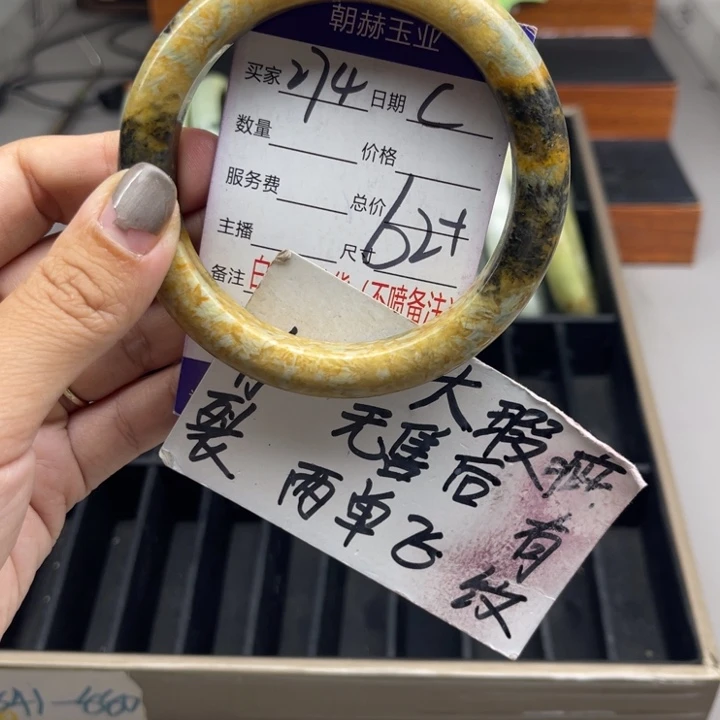 朝赫玉业
买家 274 日期 C
数量 价格
服务费 总价
主播 尺寸 62+
备注 (不喷备注)
大瑕疵 有纹
无售后
两单飞
裂